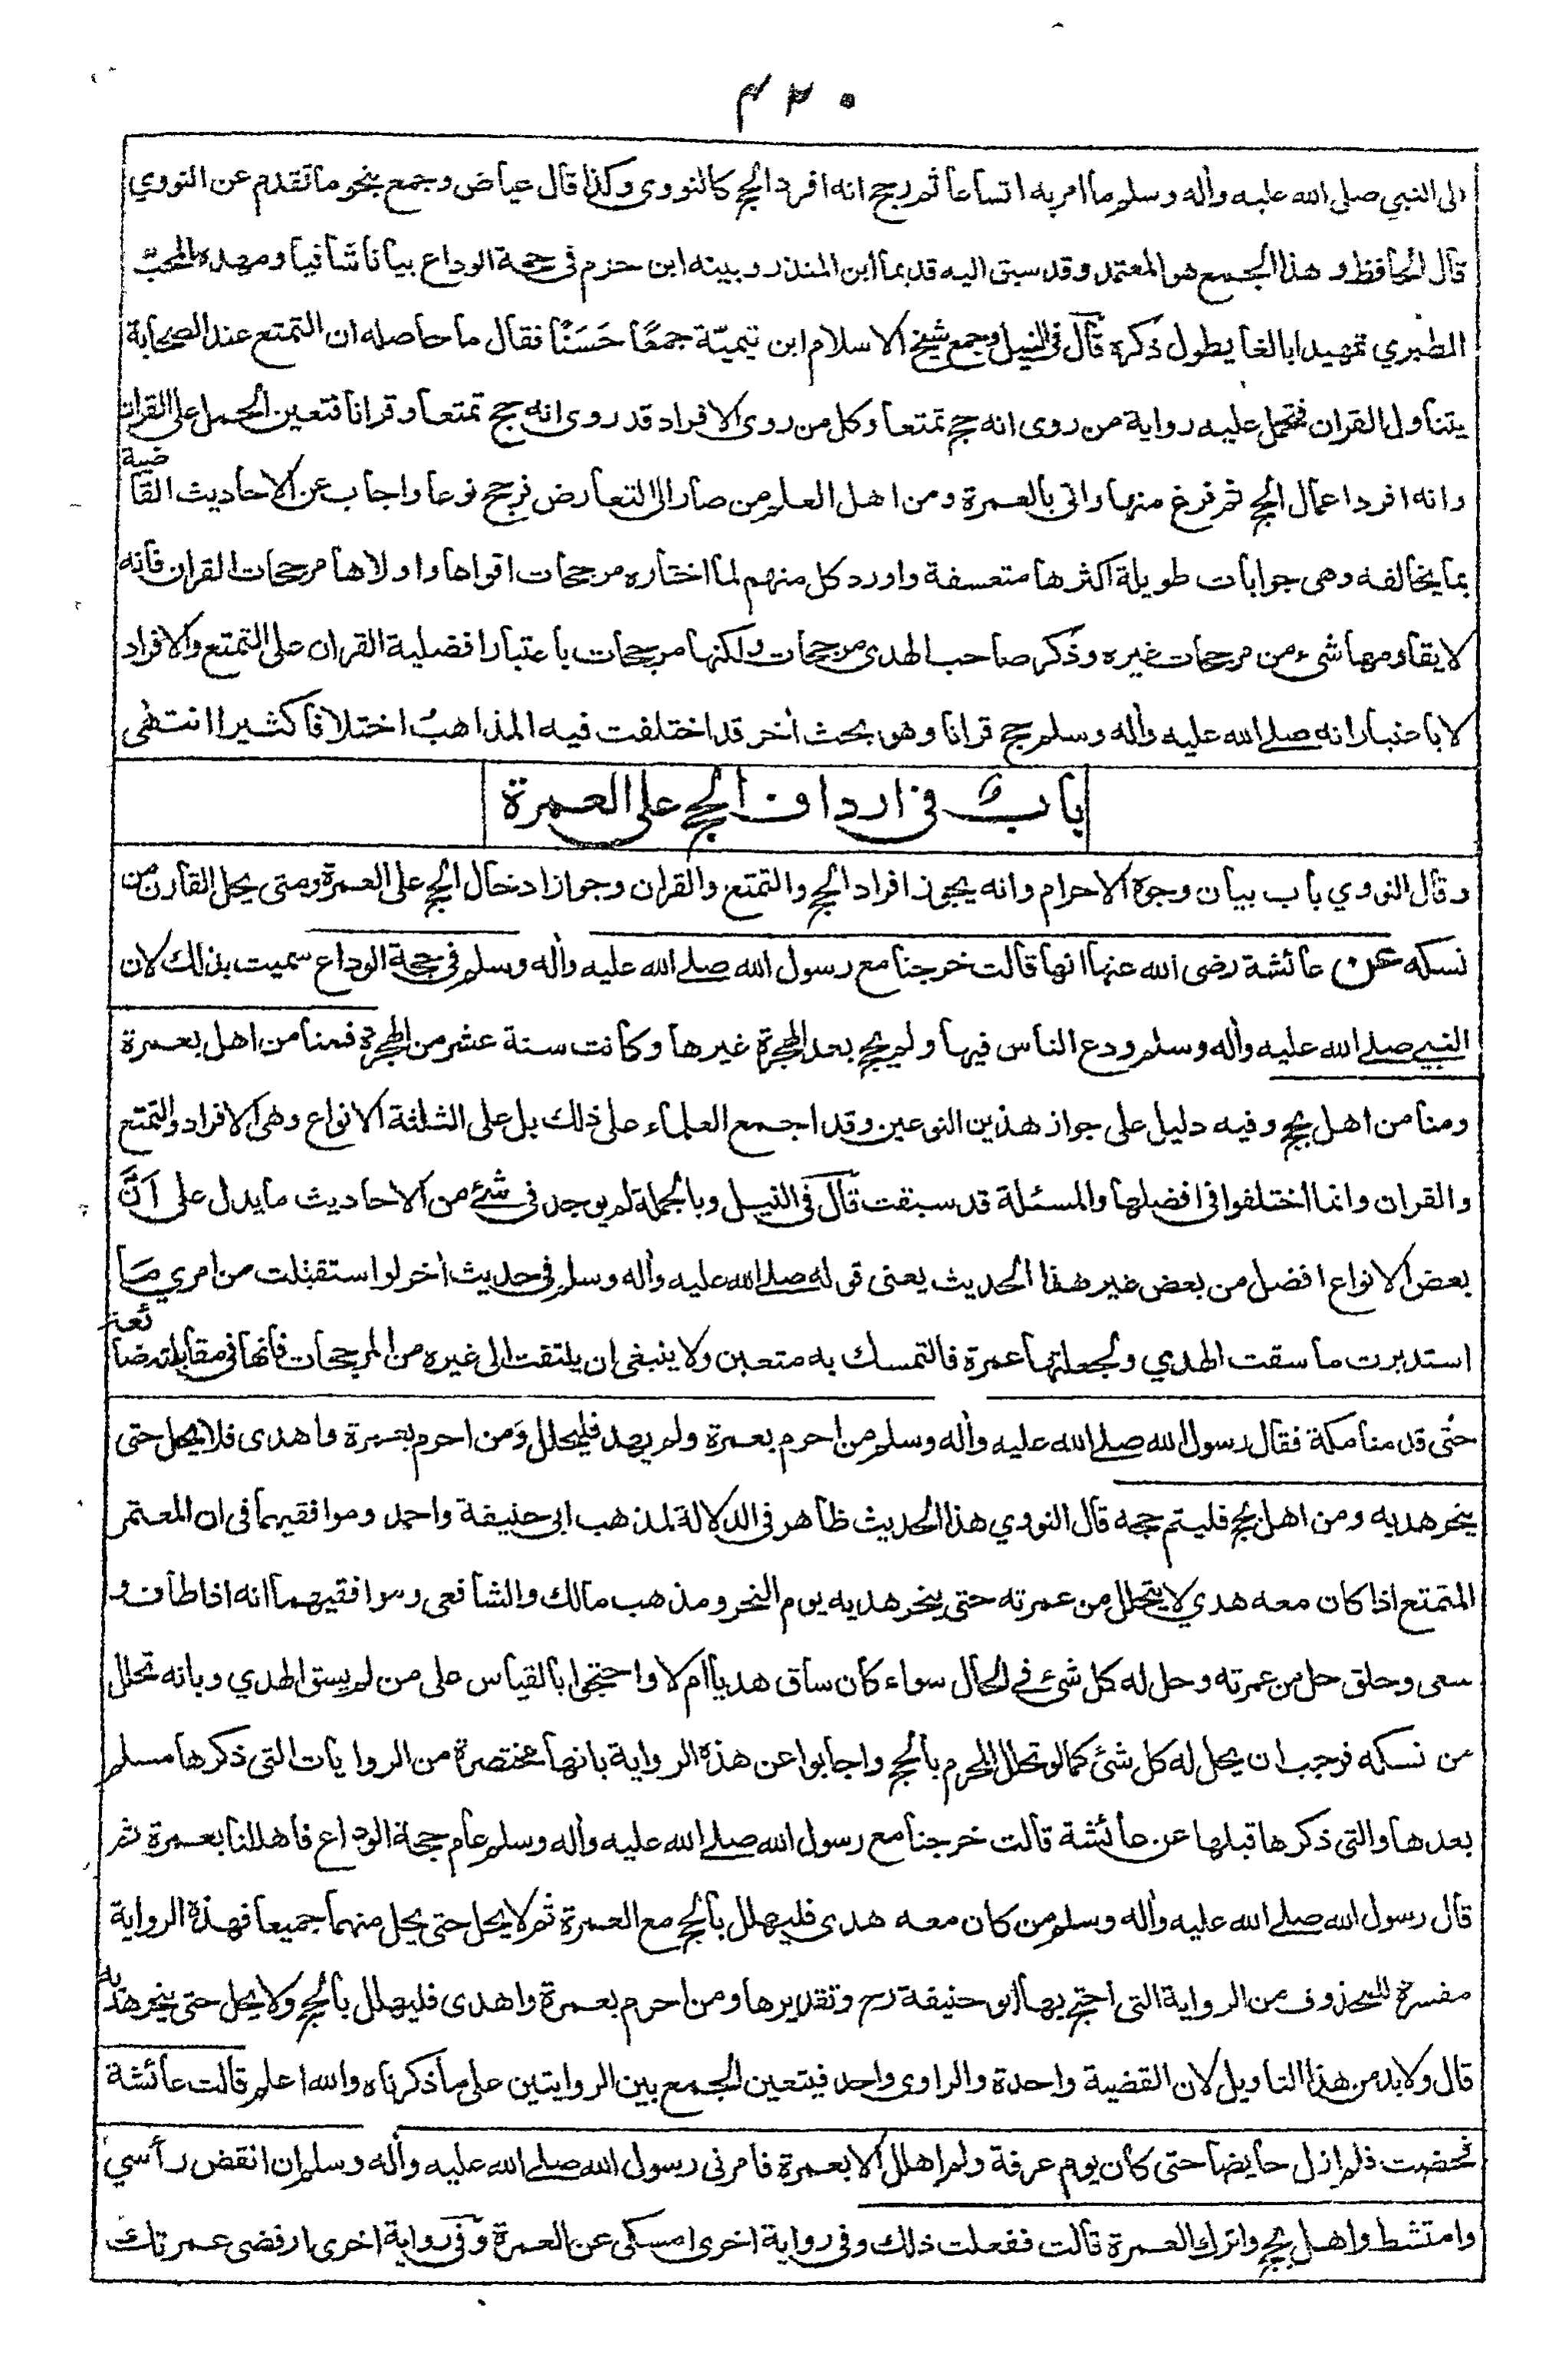 ٤٢٠
الى النبي صلى الله عليه واٰله وسلم ما امر به اتساعا ثم رجح انه افرد الحج كالنووي وكذا قال عياض وجمع بنحو ما تقدم عن النووي
قال الحافظ وهذا الجمع هو المعتمد وقد سبق اليه قديما ابن المنذر وبينه ابن حزم في حجة الوداع بيانا شافيا ومهده المحبّ
الطبري تمهيدا بالغا يطول ذكره قال في النيل وجمع شيخ الاسلام ابن تيميّة جمعًا حَسَنًا فقال ما حاصله ان التمتع عند الصحابة
يتناول القران فتحمل عليه رواية من روى انه حج تمتعا وكل من روى الافراد قد روى انه حج تمتعا وقرانا فتعين الحمل على القران
وانه افرد اعمال الحج ثم فرغ منها واتى بالعمرة ومن اهل العلم من صار الى التعارض فرجح نوعا واجاب عن الاحاديث القاضية
بما يخالفه وهي جوابات طويلة اكثرها متعسفة واورد كل منهم لما اختاره مرجحات اقواها واولاها مرجحات القران فانه
لا يقاومها شيء من مرجحات غيره وذكر صاحب الهدى مرجحات ولكنها مرجحات باعتبار افضلية القران على التمتع والافراد
لا باعتبار انه صلى الله عليه واٰله وسلم حج قرانا وهو بحث اٰخر قد اختلفت فيه المذاهبُ اختلافا كثيرا انتهٰى
باب في ارداف الحج على العمرة
وقال النووي باب بيان وجوه الاحرام وانه يجوز افراد الحج والتمتع والقران وجواز ادخال الحج على العمرة ومتى يحل القارن من
نسكه عن عائشة رضى الله عنها انها قالت خرجنا مع رسول الله صلى الله عليه واٰله وسلم في حجة الوداع سميت بذلك لان
النبي صلى الله عليه واٰله وسلم ودع الناس فيها ولم يحج بعد الهجرة غيرها وكانت سنة عشر من الهجرة فمنا من اهل بعمرة
ومنا من اهل بحج وفيه دليل على جواز هذين النوعين وقد اجمع العلماء على ذلك بل على الثلثة الانواع وهي الافراد والتمتع
والقران وانما اختلفوا في افضلها والمسئلة قد سبقت قال في النيل وبالجملة لم يوجد في شئ من الاحاديث ما يدل على اَنَّ
بعض الانواع افضل من بعض غير هذا الحديث يعنى قوله صلى الله عليه واٰله وسلم في حديث اٰخر لو استقبلت من امري مَا
استدبرت ما سقت الهدي ولجعلتها عمرة فالتمسك به متعين ولا ينبغي ان يلتفت الى غيره من المرجحات فانها في مقابلته ضائعة
حتّى قدمنا مكة فقال رسول الله صلى الله عليه واٰله وسلم من احرم بعمرة ولم يهد فليحلل وَمن احرم بعمرة واهدى فلا يحل حتى
ينحر هديه ومن اهل بحج فليتم حجه قال النووي هذا الحديث ظاهر في الدلالة لمذهب ابي حنيفة واحمد وموافقيهما في ان المعتمر
المتمتع اذا كان معه هدي لا يتحلل من عمرته حتى ينحر هديه يوم النحر ومذهب مالك والشافعي وموافقيهما انه اذا طاف و
سعى وحلق حل من عمرته وحل له كل شئ في الحال سواء كان ساق هديا ام لا واحتجوا بالقياس على من لم يسق الهدي وبانه تحلل
من نسكه فوجب ان يحل له كل شئ كما لو تحلل المحرم بالحج واجابوا عن هذه الرواية بانها مختصرة من الروايات التي ذكرها مسلم
بعدها والتي ذكرها قبلها عن عائشة قالت خرجنا مع رسول الله صلى الله عليه واٰله وسلم عام حجة الوداع فاهللنا بعمرة ثم
قال رسول الله صلى الله عليه واٰله وسلم من كان معه هدى فليهلل بالحج مع العمرة ثم لا يحل حتى يحل منهما جميعا فهذه الرواية
مفسرة للمحذوف من الرواية التي احتج بها ابو حنيفة رح وتقديرها ومن احرم بعمرة واهدى فليهلل بالحج ولا يحل حتى ينحر هديه
قال ولا بد من هذا التاويل لان القضية واحدة والراوي واحد فيتعين الجمع بين الروايتين على ما ذكرناه والله اعلم قالت عائشة
فحضت فلم ازل حايضا حتى كان يوم عرفة ولم اهلل الا بعمرة فامرني رسول الله صلى الله عليه واٰله وسلم ان انقض رأسي
وامتشط واهل بحج واترك العمرة قالت ففعلت ذلك وفي رواية اخرى امسكى عن العمرة وفي رواية اخرى ارفضى عمرتك